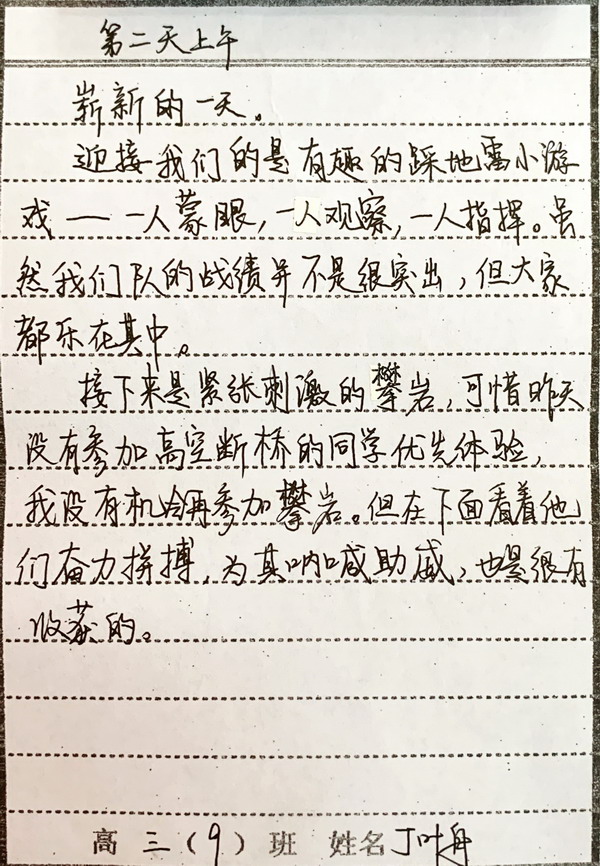 第二天上午
崭新的一天。
迎接我们的是有趣的踩地雷小游
戏——一人蒙眼，一人观察，一人指挥。虽
然我们队的战绩并不是很突出，但大家
都乐在其中。
接下来是紧张刺激的攀岩，可惜昨天
没有参加高空断桥的同学优先体验，
我没有机会再参加攀岩。但在下面看着他
们奋力拼搏，为其呐喊助威，也是很有
收获的。
高三（9）班 姓名丁叶舟